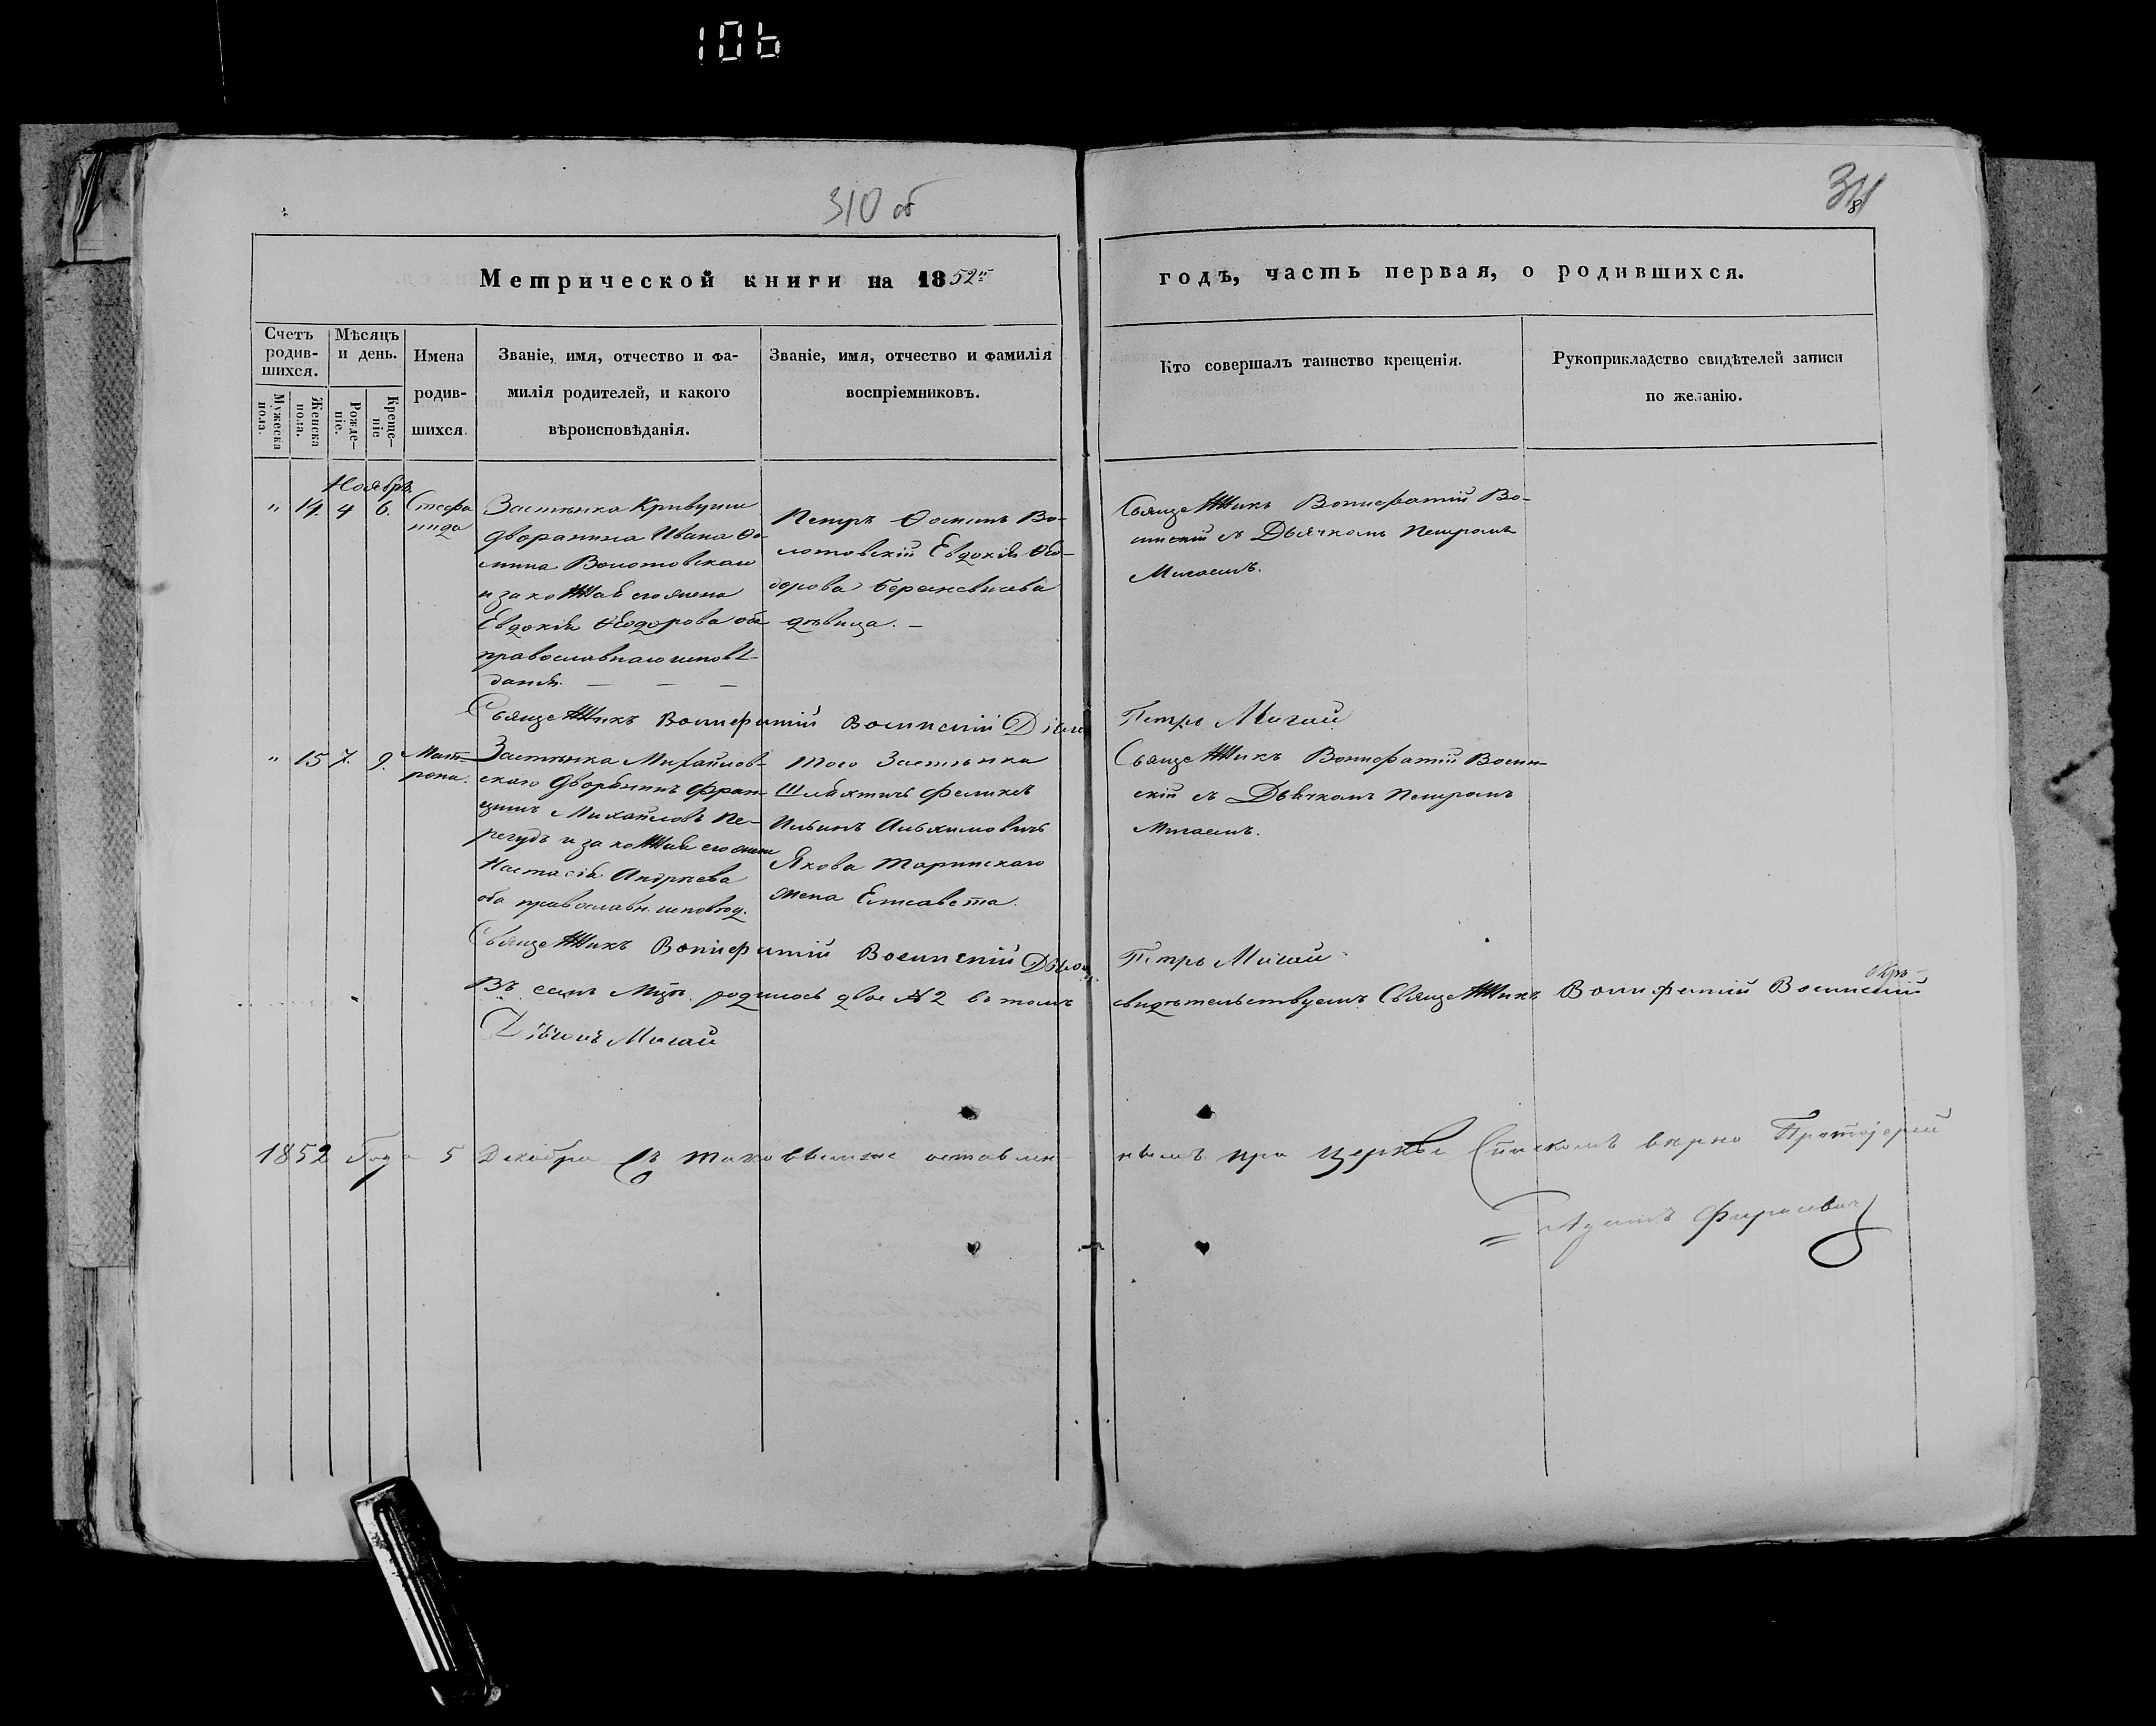 106
310 об
311
8
Метрической книги на 1852й
годъ, часть первая, о родившихся.
Счетъ родив-шихся.
Мѣсяцъ и день.
Имена родив-шихся.
Званіе, имя, отчество и фа-
милія родителей, и какого
вѣроисповѣданія.
Званіе, имя, отчество и фамилія
воспріемниковъ.
Кто совершалъ таинство крещенія.
Рукоприкладство свидѣтелей записи
по желанію.
Мужеска пола.
Женска пола.
Рожде-ніе.
Креще-ніе
Ноябрь.
" 14. 4 6. Стефа
нида
Застѣнка Кривуши
дворянина Ивана Ѳо
мина Волотовскаго
и законная его жена
Евдокія Ѳеодорова оба
православнаго исповѣ-
данія. — — —
Петръ Ѳоминъ Во-
лотовскій Евдокія Ѳео-
дорова
дѣвица. —
Священникъ Вонифатій Во-
инскій съ Дьячкомъ Петромъ
Мигаемъ.
Священникъ Вонифатій Воинскій Дьячокъ
Петръ Мигай
" 15 7. 9. Мат-
рона.
Застѣнка Михайлов-
скаго Дворянинъ Фран-
цишъ Михайловъ Пе-
регудъ и законная его жена
Настасія Андреева
оба православн. исповѣд.
Того Застѣнка
Шляхтичъ Феликсъ
Ильинъ Альхимовичъ
Якова Таринскаго
жена Елисавета.
Священникъ Вонифатій Воин-
скій съ Дьячкомъ Петромъ
Мигаемъ.
Священникъ Вонифатій Воинскій Дьячокъ
Петръ Мигай
Въ семъ Мцѣ. родилось двое № 2 въ томъ
свидѣтельствуемъ Священникъ Вонифатій Воинскій
Дьячокъ Мигай
1852 Года 5 Декабря Съ таковымъ же оставлен-
нымъ при Церкви Спискомъ вѣрно Протоіерей